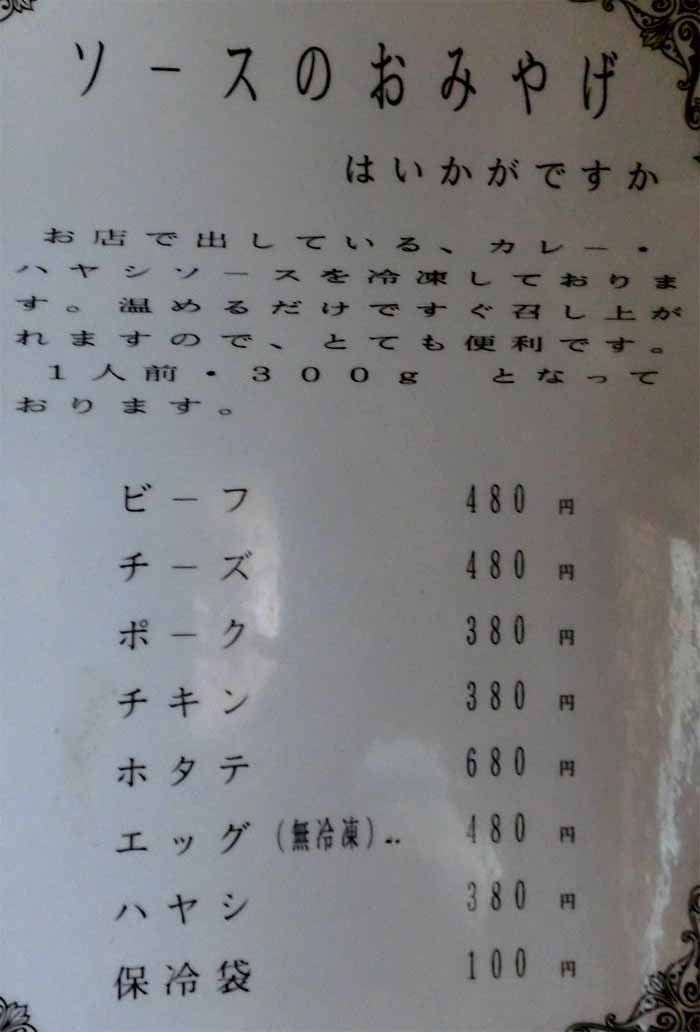 ソースのおみやげ
はいかがですか
お店で出している、カレー・
ハヤシソースを冷凍しておりま
す。温めるだけですぐ召し上が
れますので、とても便利です。
１人前・３００ｇ　となって
おります。
ビーフ 480 円
チーズ 480 円
ポーク 380 円
チキン 380 円
ホタテ 680 円
エッグ (無冷凍).. 480 円
ハヤシ 380 円
保冷袋 100 円